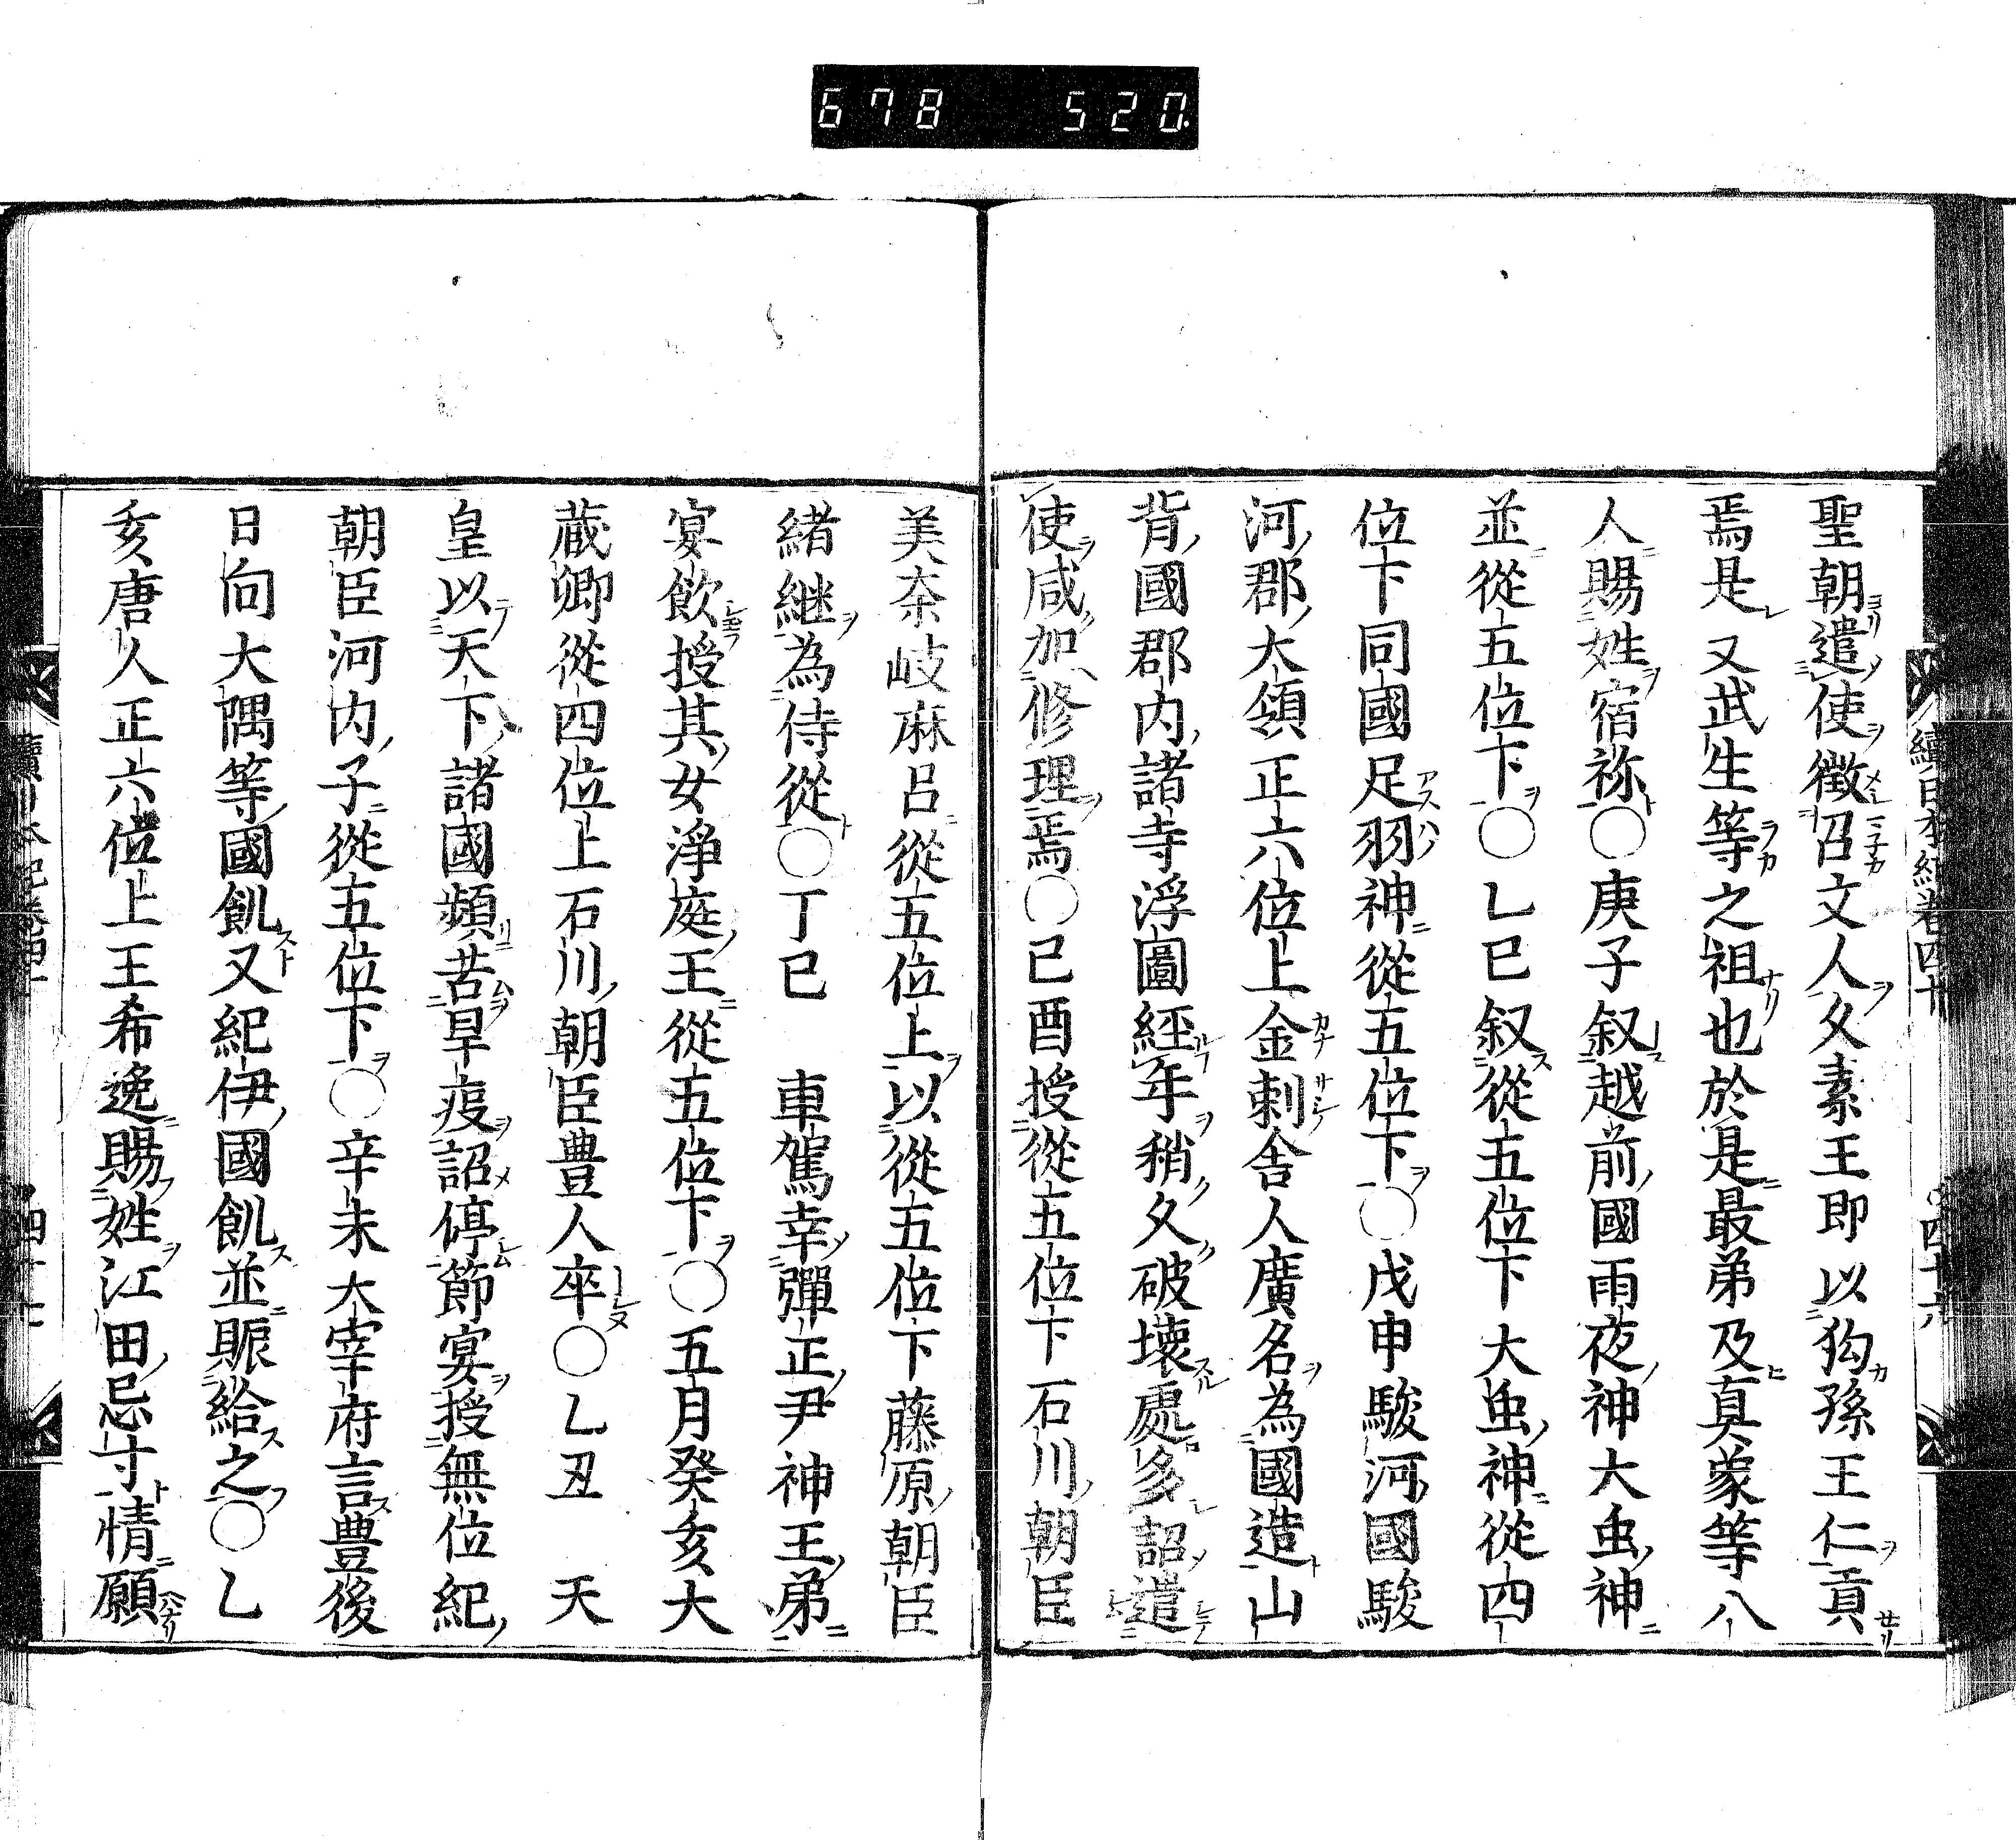 678 520
聖朝遣使徵召文人久素王即以狗孫王仁貢
焉是又武生等之祖也於是最弟及真象等八
人賜姓宿祢○庚子叙越前國雨夜神大虫神
並從五位下○乙巳叙從五位下大虫神從四
位下同國足羽神從五位下○戊申駿河國駿
河郡大領正六位上金刺舎人廣名為國造山
背國郡内諸寺浮圖経年稍久破壊處多詔遣
使咸加修理焉○己酉授從五位下石川朝臣
美奈岐麻呂從五位上以從五位下藤原朝臣
緒継為侍從○丁巳 車駕幸彈正尹神王弟
宴飲授其女淨庭王從五位下○五月癸亥大
蔵卿從四位上石川朝臣豊人卒○乙丑 天
皇以天下諸國頻苦旱疫詔停節宴授無位紀
朝臣河内子從五位下○辛未大宰府言豊後
日向大隅等國飢又紀伊國飢並賑給之○乙
亥唐人正六位上王希逸賜姓江田忌寸情願